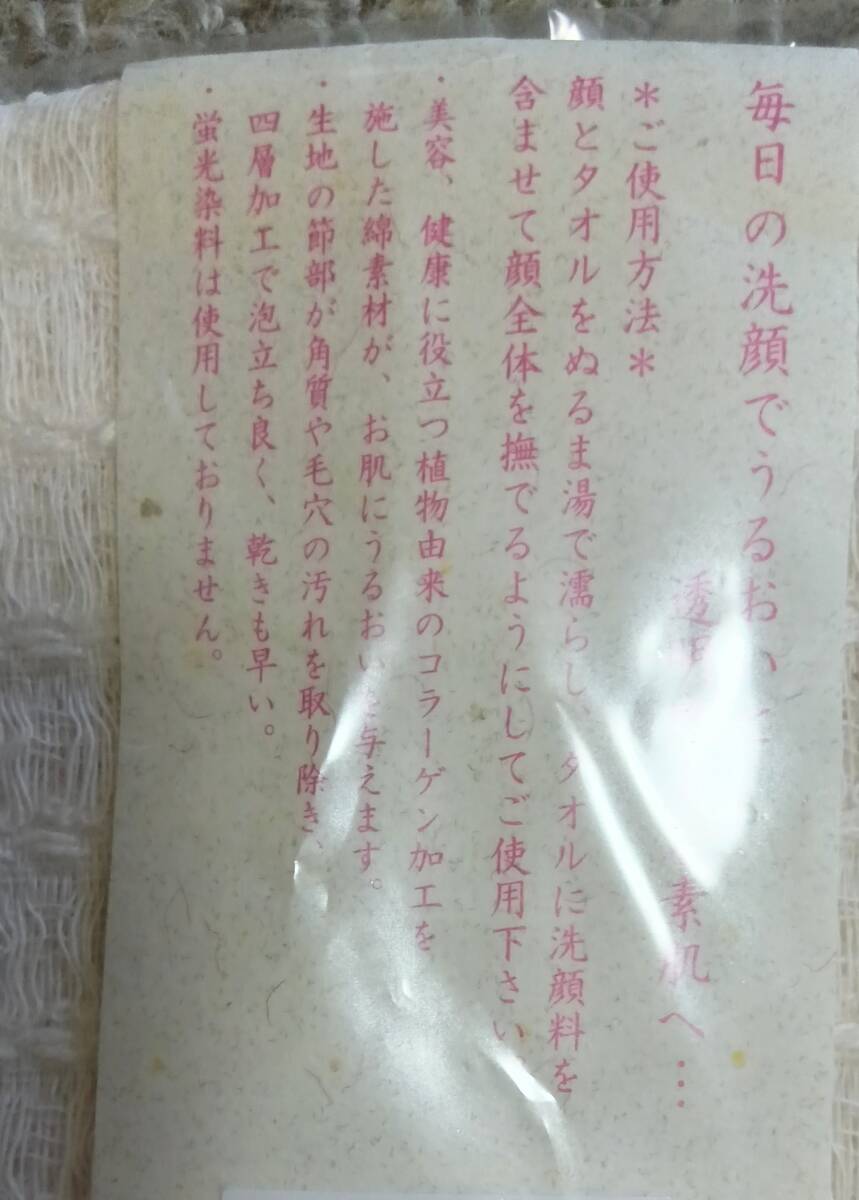 毎日の洗顔でうるおい
透 素肌へ…
＊ご使用方法＊
顔とタオルをぬるま湯で濡らし、タオルに洗顔料を
含ませて顔全体を撫でるようにしてご使用下さい
・美容、健康に役立つ植物由来のコラーゲン加工を
施した綿素材が、お肌にうるおいを与えます。
・生地の節部が角質や毛穴の汚れを取り除き、
四層加工で泡立ち良く、乾きも早い。
・蛍光染料は使用しておりません。